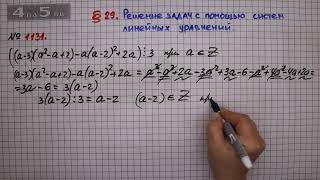 4по5.ru
§29. Решение задач с помощью систем
линейных уравнений.
№ 1131.
((a-3)(a²-a+2)-a(a-2)²+2a):3 при a∈Z
(a-3)(a²-a+2)-a(a-2)²+2a = a³-a²+2a-3a²+3a-6-a³+4a²-4a+2a=
=3a-6=3(a-2)
3(a-2):3=a-2 (a-2)∈Z